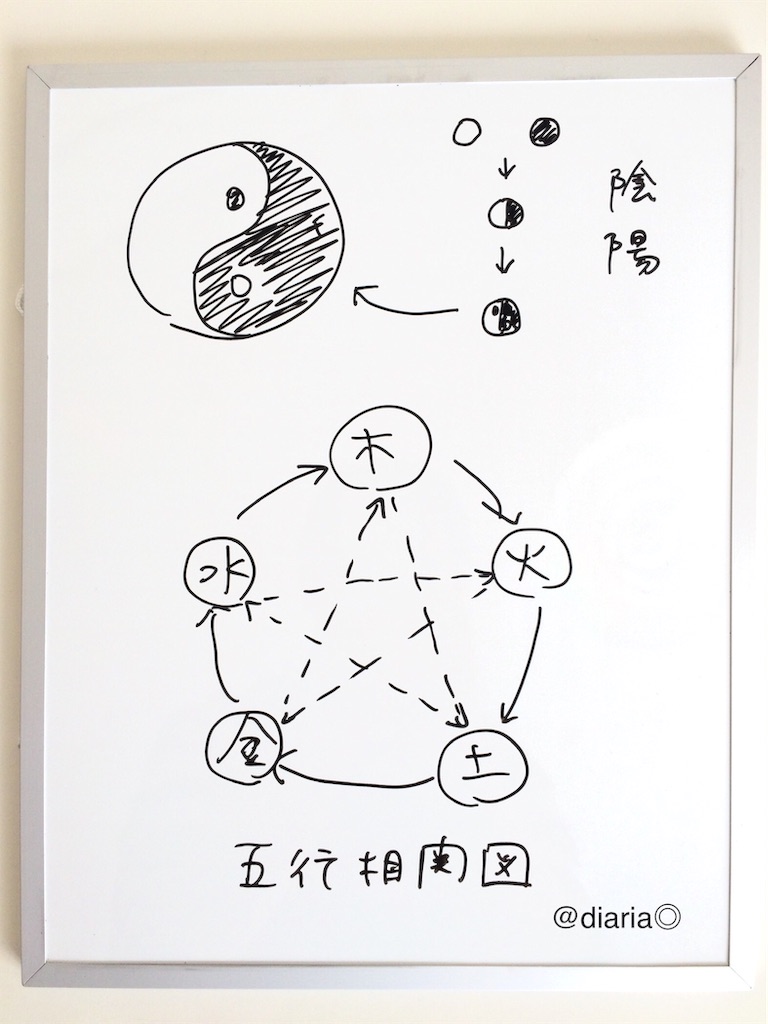 陰
陽
木
水
火
金
土
五行相関図
@diaria◎